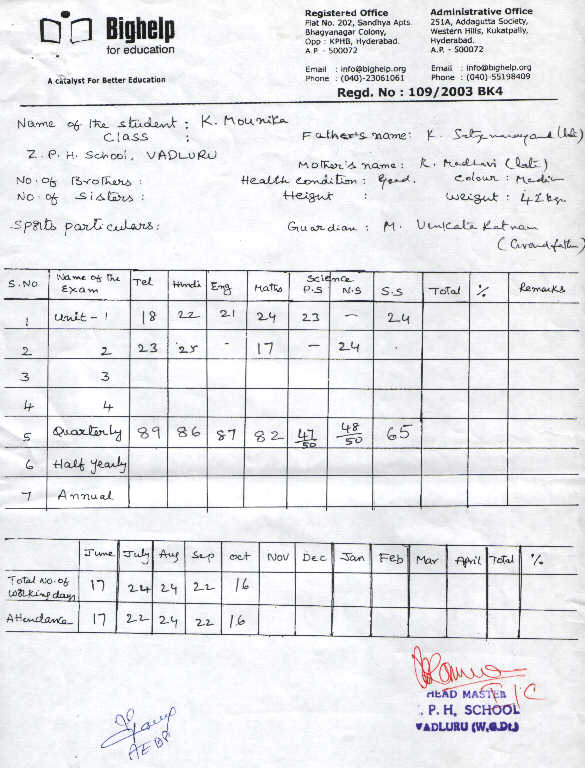 Bighelp
for education
A catalyst For Better Education
Registered Office
Flat No. 202, Sandhya Apts.
Bhagyanagar Colony,
Opp : KPHB, Hyderabad.
A.P. - 500072
Email : info@bighelp.org
Phone : (040)-23061061
Administrative Office
251A, Addagutta Society,
Western Hills, Kukatpally,
Hyderabad.
A.P. - 500072
Email : info@bighelp.org
Phone : (040)-55198409
Regd. No : 109/2003 BK4
Name of the student : K. Mounika
Class :
Father's name: K. Satyanarayana (late)
Z.P.H. School, VADLURU
Mother's name: K. Madhavi (late)
No. of Brothers : Health condition : Good. Colour : Medium
No. of Sisters : Height : Weight : 42 kgs
Sports particulars: Guardian : M. Venkata Ratnam
(Grandfather)
S.No. Name of the Exam Tel Hindi Eng Maths Science P.S N.S S.S Total % Remarks
1 Unit - 1 18 22 21 24 23 - 24
2 2 23 25 - 17 - 24 .
3 3
4 4
5 Quarterly 89 86 87 82 47/50 48/50 65
6 Half Yearly
7 Annual
June July Aug Sep Oct Nov Dec Jan Feb Mar April Total %
Total No. of working days 17 24 24 22 16
Attendance 17 22 24 22 16
I/C
HEAD MASTER
. P. H, SCHOOL
VADLURU (W.G.Dt.)
AEBP